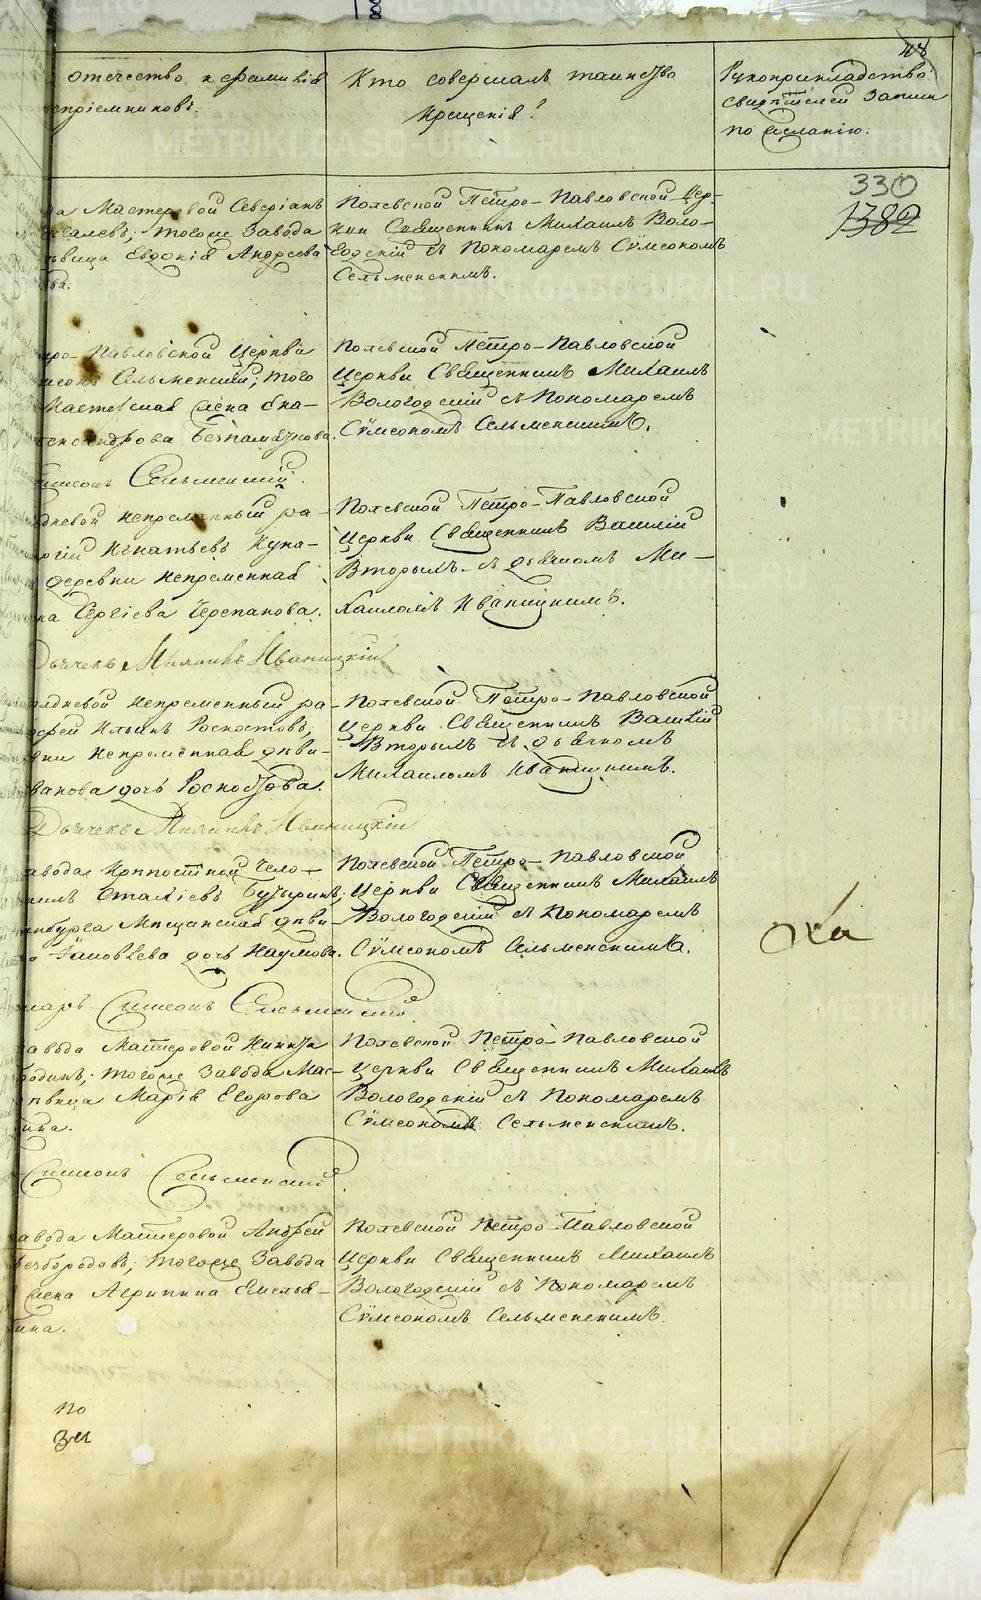 48
отечество и фамилія
воспріемниковъ.
Кто совершалъ таинство
крещенія?
Рукоприкладство
свидѣтелей записи
по желанію.
330
1382
да Мастеровой Северіанъ
галевъ; тогоже Завода
вица Евдокія Андреева
ва.
Полевской Петро-Павловской Цер-
кви Священникъ Михаилъ Воло-
годскій съ Пономаремъ Сѵмеономъ
Сельменскимъ.
тро-Павловской Церкви
меонъ Сельменскій; того
Мастерская жена Ека-
лександрова Безпамятнова.
Полевской Петро-Павловской
Церкви Священникъ Михаилъ
Вологодскій съ Пономаремъ
Сѵмеономъ Сельменскимъ.
Симеонъ Сельменскій.
дневой непременный ра-
ргій Игнатьевъ Куна-
деревни непременная
на Сергіева Черепанова.
Полевской Петро-Павловской
Церкви Священникъ Василій
Вторыхъ съ дьячкомъ Ми-
хаиломъ Иваницкимъ.
Дьячекъ Михаилъ Иваницкій
лдневой непременный ра-
рей Ильинъ Роспостовъ;
вни непременная дѣви-
ванова дочь Роспостова.
Полевской Петро-Павловской
Церкви Священникъ Василій
Вторыхъ съ дьячкомъ
Михаиломъ Иваницкимъ.
Дьячекъ Михаилъ Иваницкій
авода Крѣпостной чело-
Евсталіевъ Бутыринъ;
инбурга Мѣщанская дѣви-
а Яковлева дочь Наумова.
Полевской Петро-Павловской
Церкви Священникъ Михаилъ
Вологодскій съ Пономаремъ
Сѵмеономъ Сельменскимъ.
омарь Симеонъ Сельменскій.
авода Мастеровой Никита
родинъ; тогоже Завода Мас-
вица Марія Егорова
ина.
Полевской Петро-Павловской
Церкви Священникъ Михаилъ
Вологодскій съ Пономаремъ
Сѵмеономъ Сельменскимъ.
Симеонъ Сельменскій.
авода Мастеровой Андрей
Безбородовъ; тогоже Завода
жена Агрипина Емелья-
ина.
Полевской Петро-Павловской
Церкви Священникъ Михаилъ
Вологодскій съ Пономаремъ
Сѵмеономъ Сельменскимъ.
по
METRIKI.GASO-URAL.RU